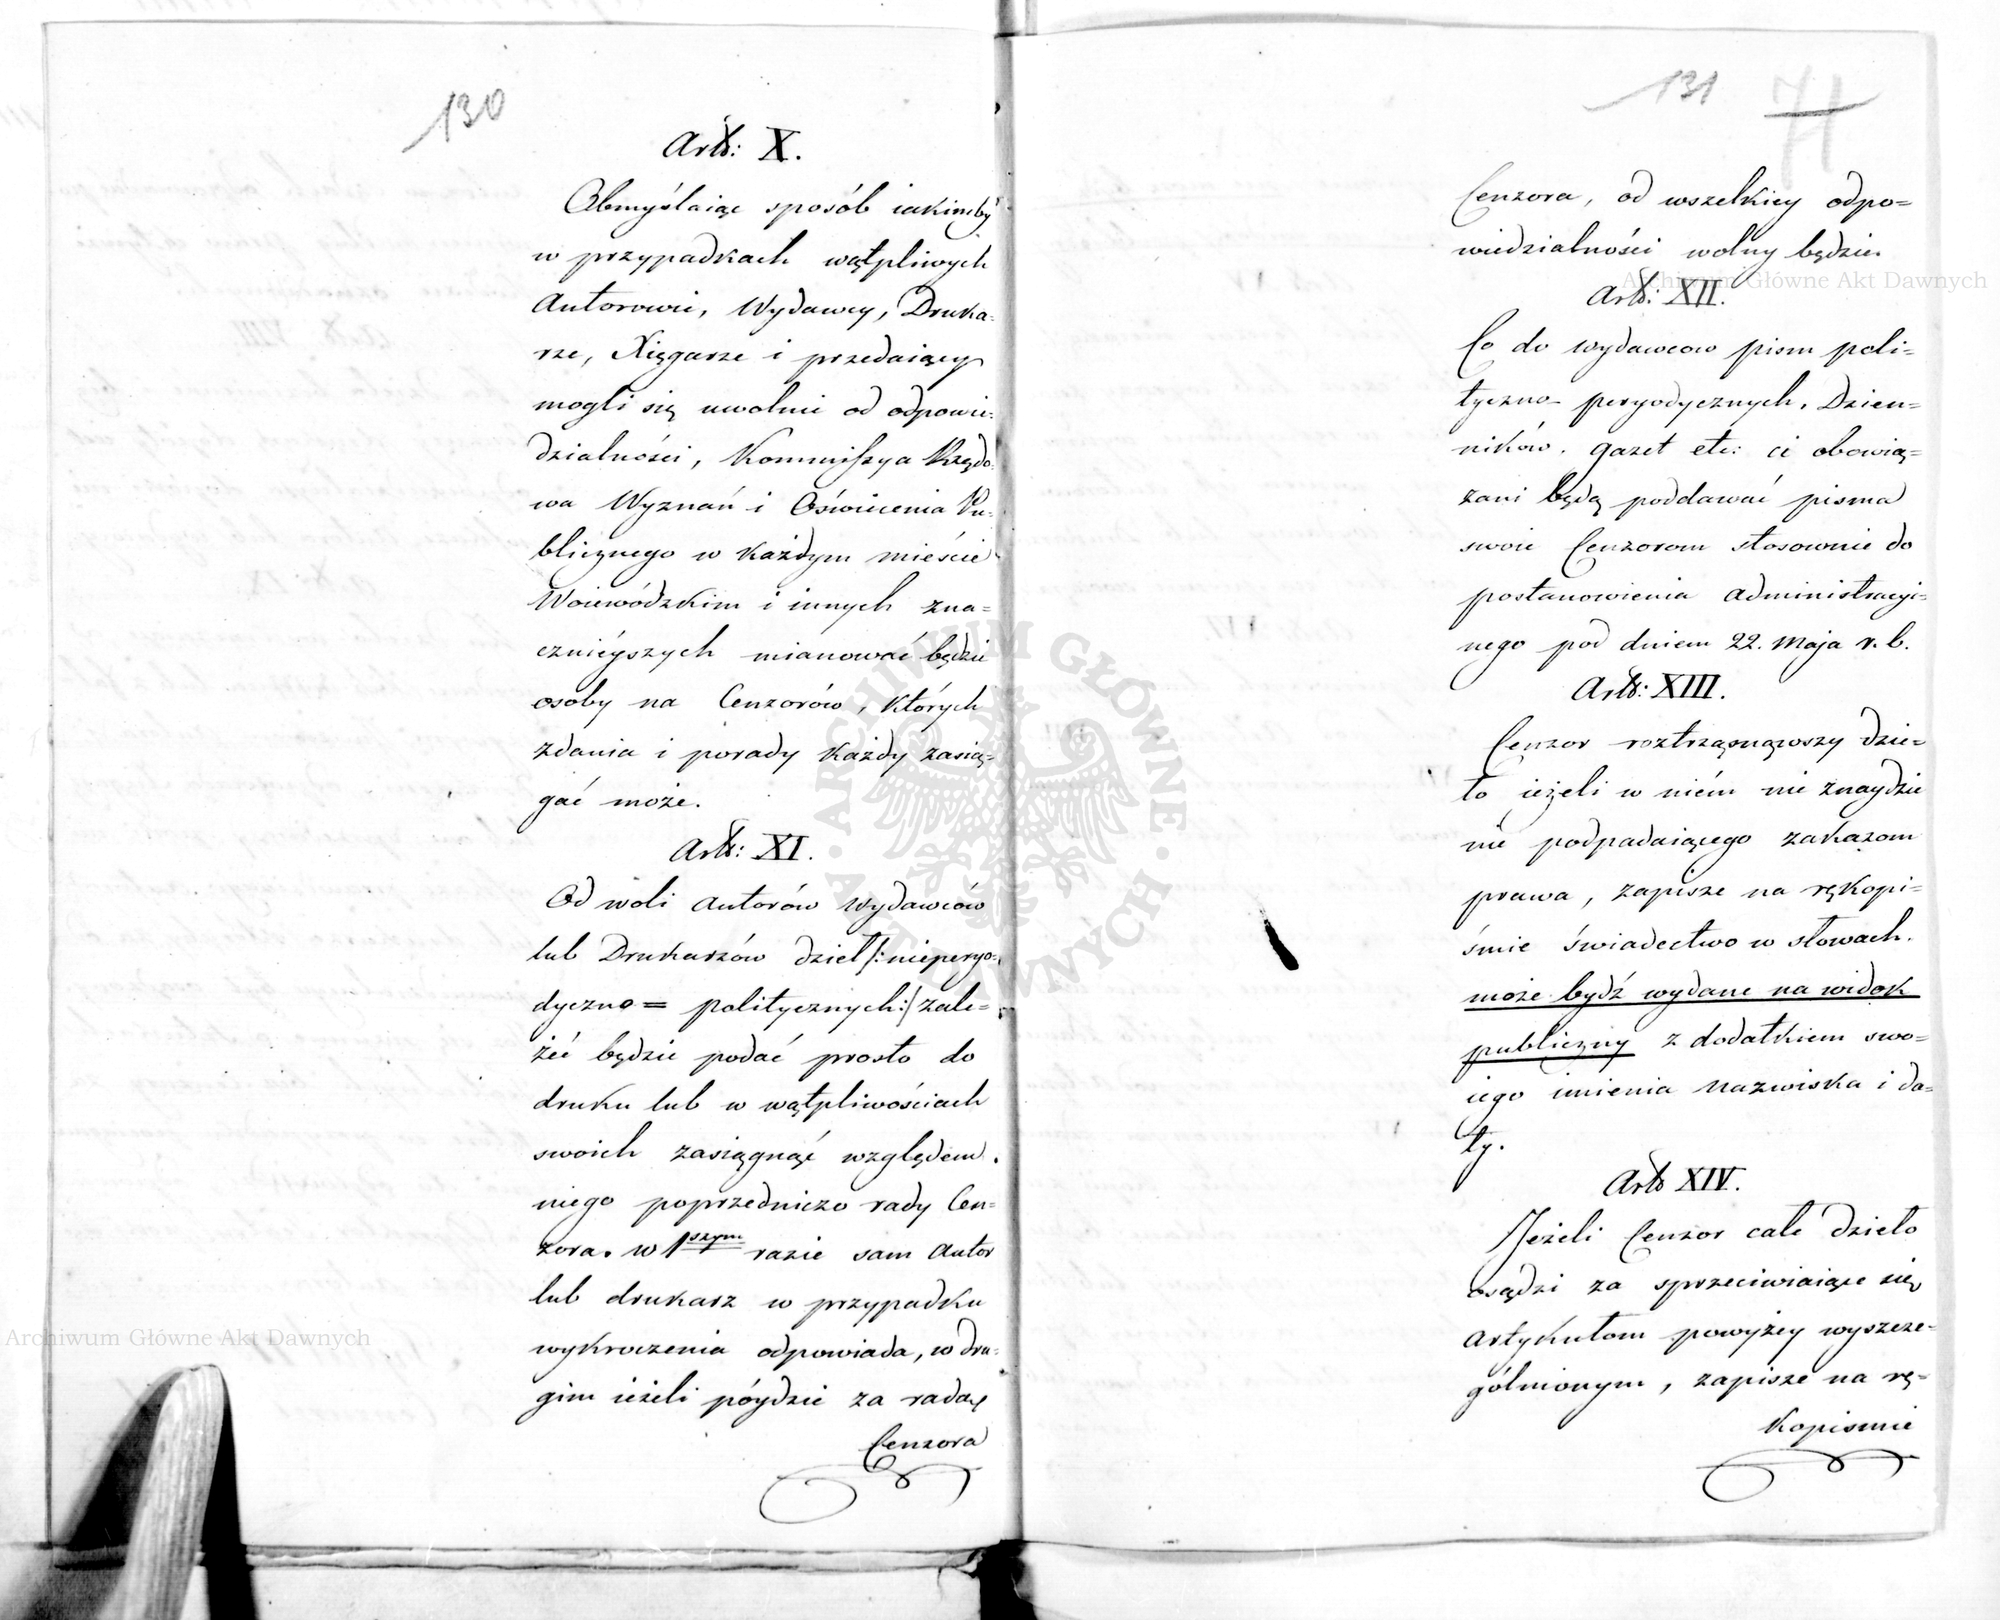 130
Art: X.
Obmyślaiąc sposób iakimby
w przypadkach wątpliwych
Autorowie, Wydawcy, Druka=
rze, Xięgarze i przedaiący
mogli się uwolnić od odpowie=
dzialności, Kommissya Rządo=
wa Wyznań i Oświecenia Pu=
blicznego w każdym mieście
Woiewódzkim i innych zna=
cznieyszych mianować będzie
osoby na Cenzorów, których
zdania i porady każdy zasią=
gać może.
Art: XI.
Od woli Autorów Wydawców
lub Drukarzów dzieł /:nieperyo=
dyczno = politycznych:/ zale=
żeć będzie podać prosto do
druku lub w wątpliwościach
swoich zasiągnąć względem
niego poprzedniczo rady Cen=
zora. w 1szym razie sam Autor
lub drukarz w przypadku
wykroczenia odpowiada, w dru=
gim ieżeli póydzie za radą
Cenzora
131 71
Cenzora, od wszelkiey odpo=
wiedzialności wolny będzie.
Art: XII.
Co do wydawcow pism poli=
tyczno peryodycznych, Dzien=
ników, gazet etc: ci obowią=
zani będą poddawać pisma
swoie Cenzorom stosownie do
postanowienia administracyi=
nego pod dniem 22. Maja r. b.
Art: XIII.
Cenzor roztrząsnąwszy dzie=
ło ieżeli w niém nie znaydzie
nic podpadaiącego zakazom
prawa, zapisze na rękopi=
śmie świadectwo w słowach.
może bydź wydane na widok
publiczny z dodatkiem swo=
iego imienia nazwiska i da=
ty.
Art XIV.
Jeżeli Cenzor całe dzieło
osądzi za sprzeciwiaiące się
artykułom powyżey wyszcze=
gólnionym, zapisze na rę=
kopismie
Archiwum Główne Akt Dawnych
Archiwum Główne Akt Dawnych
ARCHIWUM GŁÓWNE AKT DAWNYCH